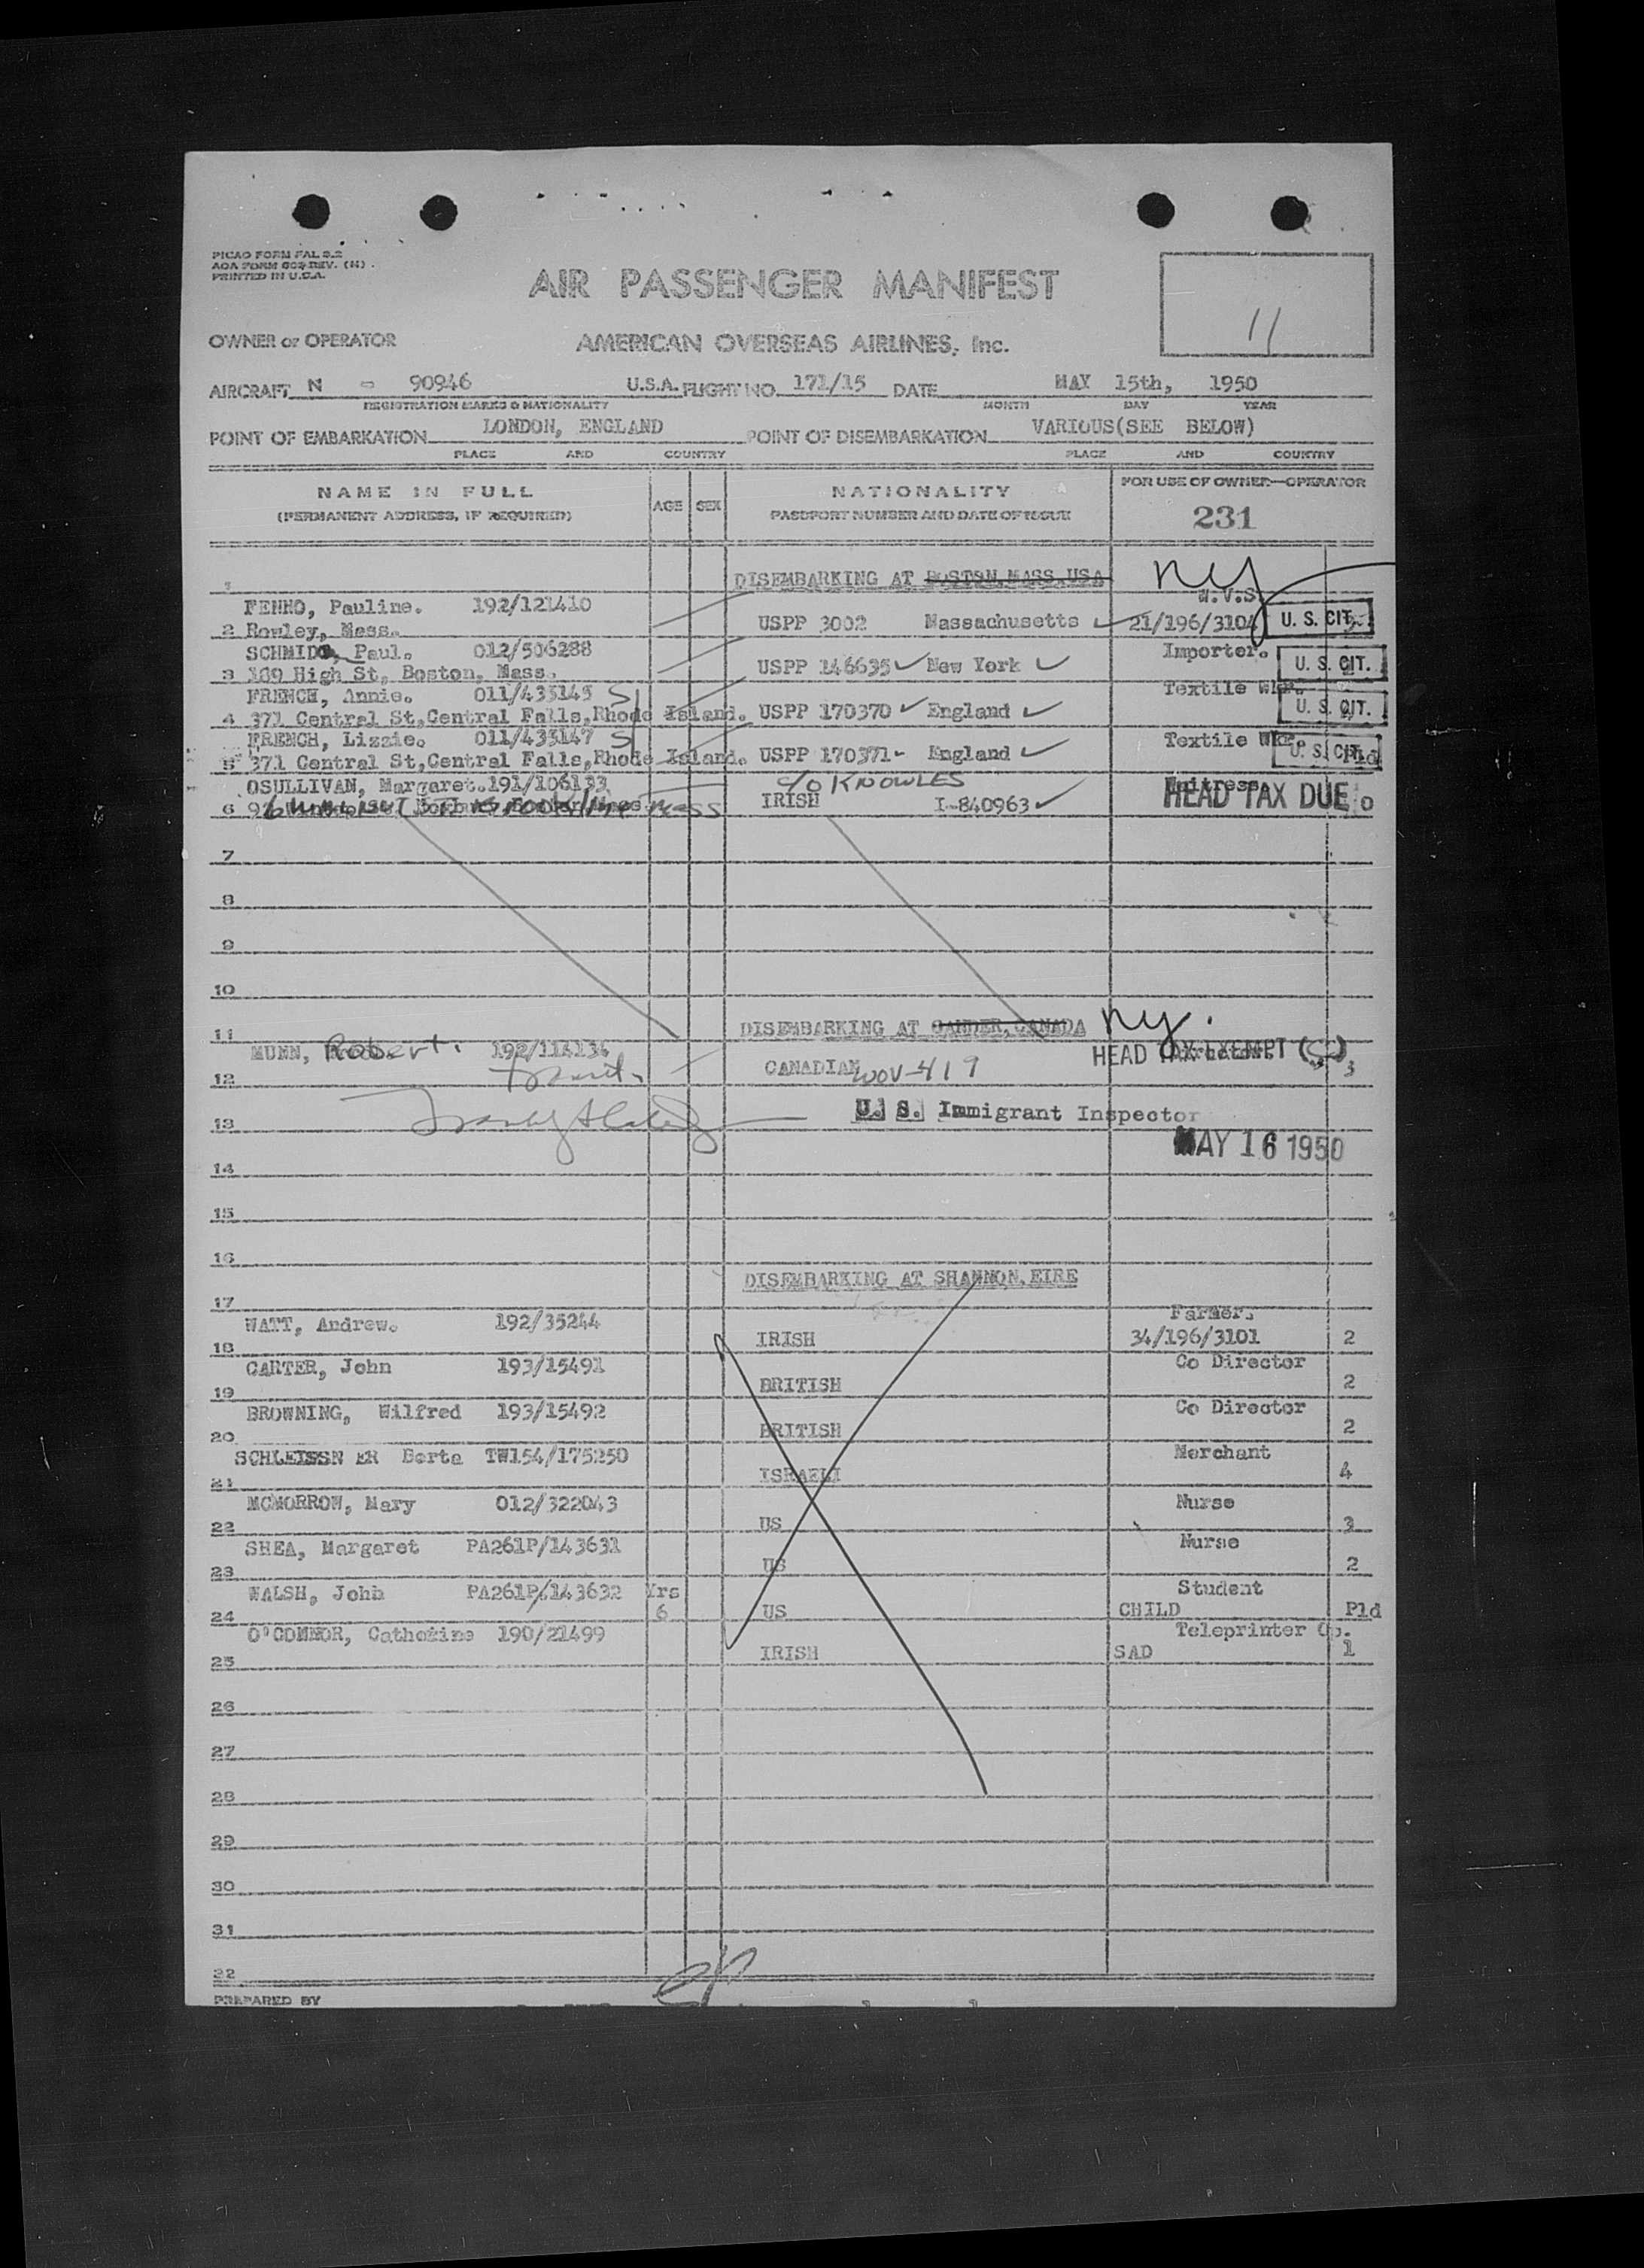 PICAO FORM FAL 3.2
AOA FORM 609 REV. (N).
PRINTED IN U.S.A.
AIR PASSENGER MANIFEST
11
OWNER or OPERATOR AMERICAN OVERSEAS AIRLINES, Inc.
AIRCRAFT N - 90946 U.S.A. FLIGHT NO. 171/15 DATE MAY 15th, 1950
REGISTRATION MARKS & NATIONALITY MONTH DAY YEAR
POINT OF EMBARKATION LONDON, ENGLAND POINT OF DISEMBARKATION VARIOUS(SEE BELOW)
PLACE AND COUNTRY PLACE AND COUNTRY
NAME IN FULL AGE SEX NATIONALITY FOR USE OF OWNER—OPERATOR
(PERMANENT ADDRESS, IF REQUIRED) PASSPORT NUMBER AND DATE OF ISSUE 231
1 DISEMBARKING AT BOSTON,MASS.USA NY
FENNO, Pauline. 192/121410 W.V.S.
2 Rowley, Mass. USPP 3002 Massachusetts 21/196/3104 U. S. CIT.
SCHMID, Paul. 012/506288 Importer.
3 189 High St, Boston, Mass. USPP 146635 New York U. S. CIT.
FRENCH, Annie. 011/435145 Textile Wkr.
4 371 Central St,Central Falls,Rhode Island. USPP 170370 England U. S. CIT.
FRENCH, Lizzie. 011/435147 Textile Wkr.
5 371 Central St,Central Falls,Rhode Island. USPP 170371- England U. S. CIT. Pld
OSULLIVAN, Margaret.191/106133 c/o KNOWLES Waitress.
6 Brookline Mass IRISH I-840963 HEAD TAX DUE
7
8
9
10
11 DISEMBARKING AT GANDER,CANADA Ny.
MUNN, Robert. 192/114134 HEAD TAX EXEMPT
12 CANADIAN 419 3
13 U. S. Immigrant Inspector
MAY 16 1950
14
15
16
DISEMBARKING AT SHANNON,EIRE
17
WATT, Andrew. 192/35244 Farmer.
18 IRISH 34/196/3101 2
CARTER, John 193/15491 Co Director
19 BRITISH 2
BROWNING, Wilfred 193/15492 Co Director
20 BRITISH 2
SCHLEISSN ER Berta TW154/175250 Merchant
21 ISRAELI 4
MCMORROW, Mary 012/322043 Nurse
22 US 3
SHEA, Margaret PA261P/143631 Nurse
23 US 2
WALSH, John PA261P/143632 Yrs Student
24 6 US CHILD Pld
O'CONNOR, Catherine 190/21499 Teleprinter Op.
25 IRISH SAD 1
26
27
28
29
30
31
32
PREPARED BY